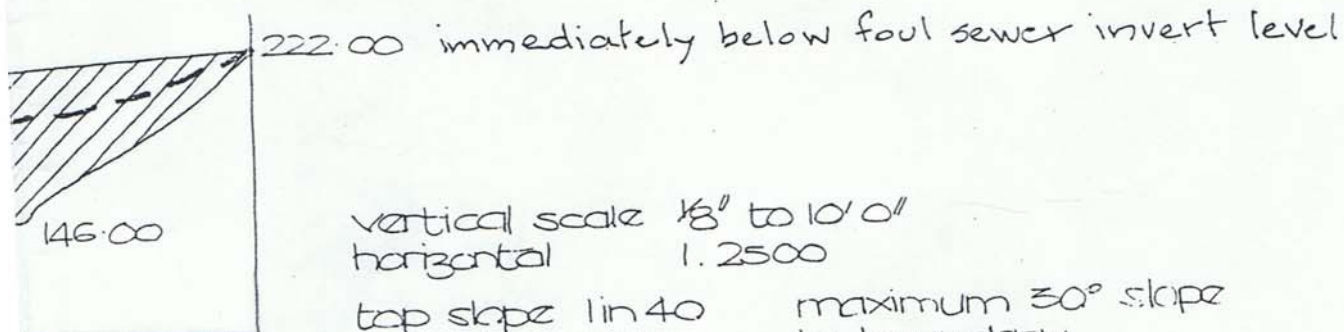 222.00 immediately below foul sewer invert level
146.00
vertical scale 1/8" to 10' 0"
horizontal 1.2500
top slope 1 in 40 maximum 30° slope